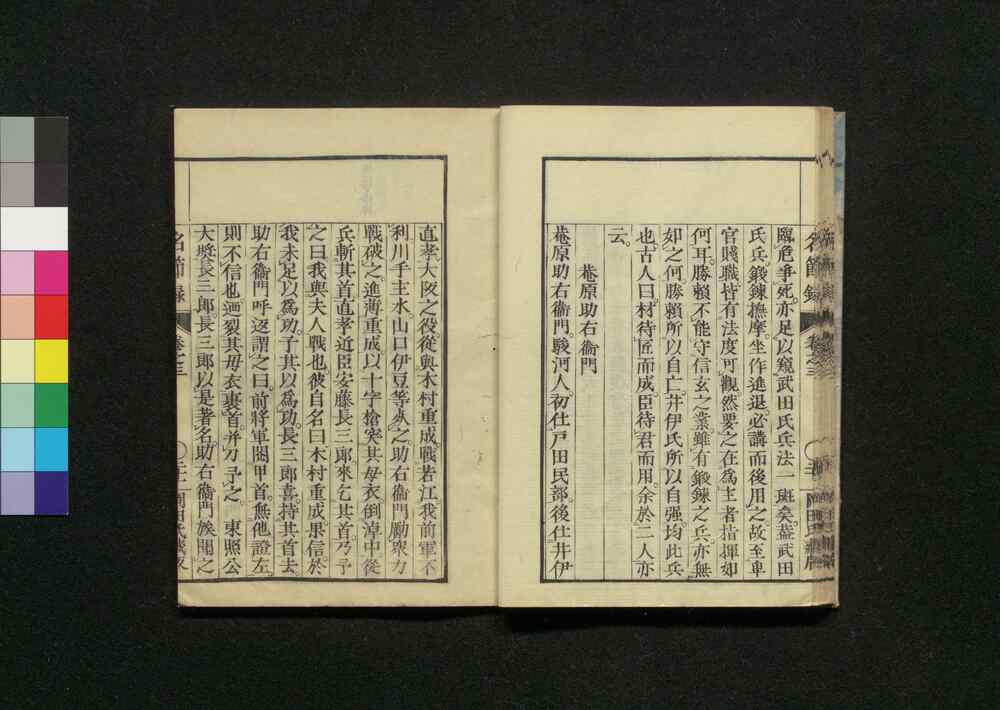 臨危爭死。亦足以窺武田氏兵法一斑矣。蓋武田
氏兵。鍛錬撫摩。坐作進退。必講而後用之。故至卑
官賤職。皆有法度可觀。然要之在爲主者指揮如
何耳。勝賴不能守信玄之業。雖有鍛錬之兵。亦無
如之何。勝賴所以自亡。井伊氏所以自强。均此兵
也。古人曰。材待匠而成。臣待君而用。余於二人亦
云。
菴原助右衞門
菴原助右衞門。駿河人。初仕戸田民部。後仕井伊
直孝。大阪之役。從與木村重成戰若江。我前軍不
利。川手主水山口伊豆等死之。助右衞門勵衆力
戰破之。進薄重成。以十字槍突其母衣。倒淖中。從
兵斬其首。直孝近臣安藤長三郎來乞其首。乃予
之曰。我與夫人戰也。彼自名曰木村重成。果信。於
我未足以爲功。子其以爲功。長三郎喜。持其首去。
助右衞門呼返謂之曰。前將軍閲甲首。無他證左。
則不信也。迺裂其母衣裹首。幷刀予之。 東照公
大奬長三郎。長三郎以是著名。助右衞門族聞之
名節録 卷之三